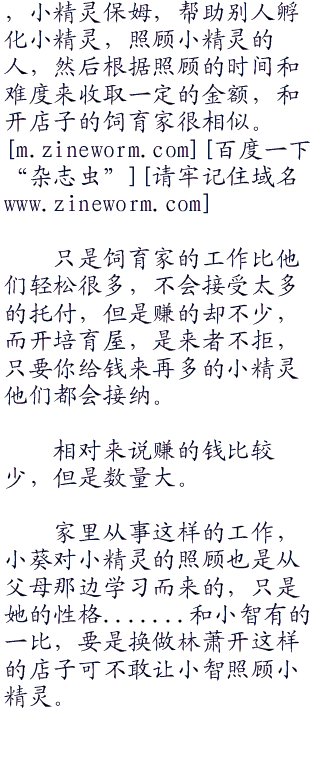 ，小精灵保姆，帮助别人孵
化小精灵，照顾小精灵的
人，然后根据照顾的时间和
难度来收取一定的金额，和
开店子的饲育家很相似。
[m.zineworm.com][百度一下
“杂志虫”][请牢记住域名
www.zineworm.com]
只是饲育家的工作比他
们轻松很多，不会接受太多
的托付，但是赚的却不少，
而开培育屋，是来者不拒，
只要你给钱来再多的小精灵
他们都会接纳。
相对来说赚的钱比较
少，但是数量大。
家里从事这样的工作，
小葵对小精灵的照顾也是从
父母那边学习而来的，只是
她的性格.......和小智有的
一比，要是换做林萧开这样
的店子可不敢让小智照顾小
精灵。